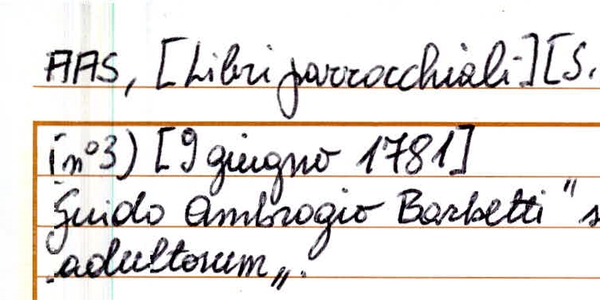 AAS, [Libri parrocchiali] [S.
(n°3) [9 giugno 1781]
Guido Ambrogio Barbetti "s
adultorum".